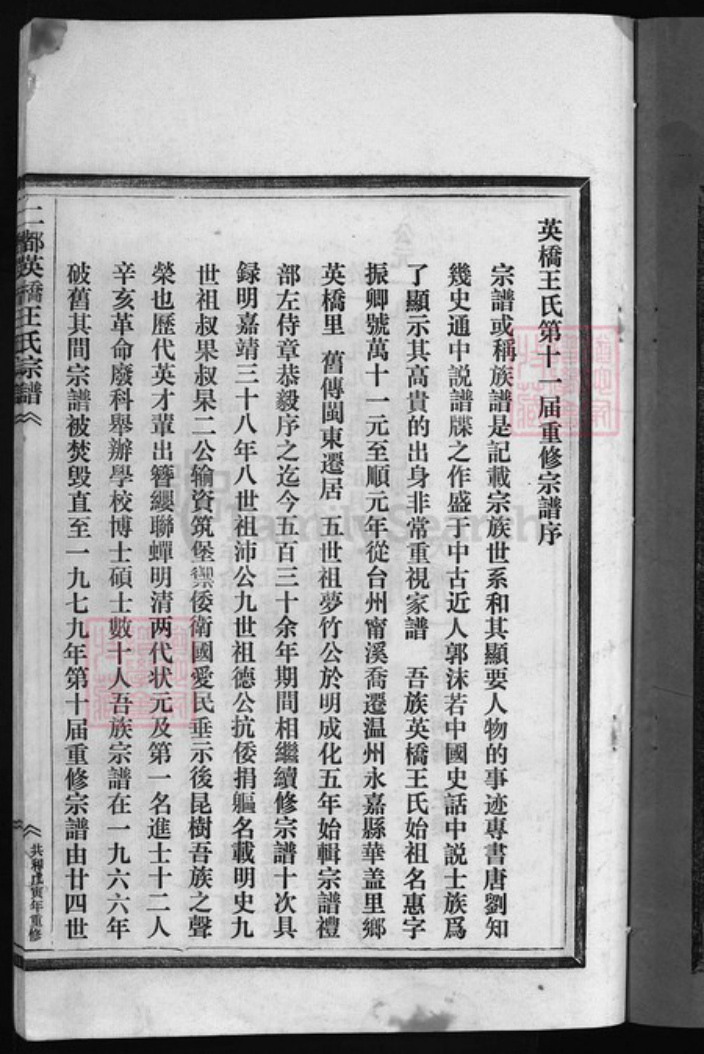 英橋王氏第十一届重修宗譜序
宗譜或稱族譜是記載宗族世系和其顯要人物的事迹專書唐劉知
幾史通中説譜牒之作盛于中古近人郭沫若中國史話中説士族爲
了顯示其高貴的出身非常重視家譜 吾族英橋王氏始祖名惠字
振卿號萬十一元至順元年從台州甯溪喬遷温州永嘉縣華盖里鄉
英橋里 舊傳閩東遷居 五世祖夢竹公於明成化五年始輯宗譜禮
部左侍章恭毅序之迄今五百三十余年期間相繼續修宗譜十次具
録明嘉靖三十八年八世祖沛公九世祖德公抗倭捐軀名載明史九
世祖叔果叔杲二公输資筑堡禦倭衛國愛民垂示後昆樹吾族之聲
榮也歷代英才輩出簪纓聯蟬明清两代状元及第一名進士十二人
辛亥革命廢科舉辦學校博士碩士數十人吾族宗譜在一九六六年
破舊其間宗譜被焚毁直至一九七九年第十届重修宗譜由廿四世
二都英橋王氏宗譜
共和戊寅年重修
公元
FamilySearch